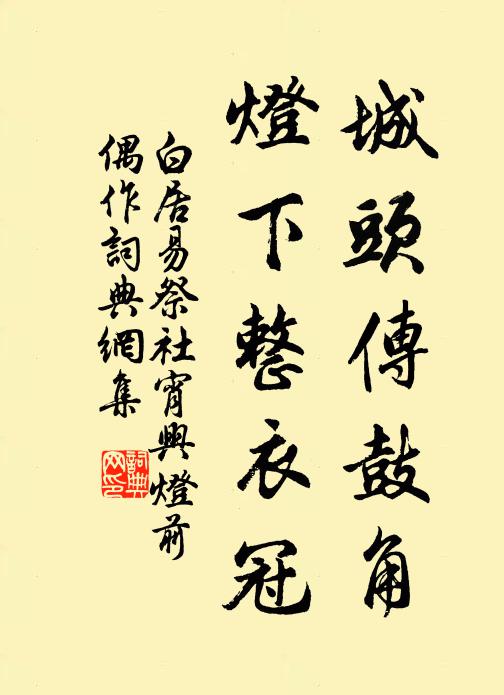 城頭傳鼓角
燈下整衣冠
白居易祭社宵興燈前
偶作詞典網集
詞典
网印